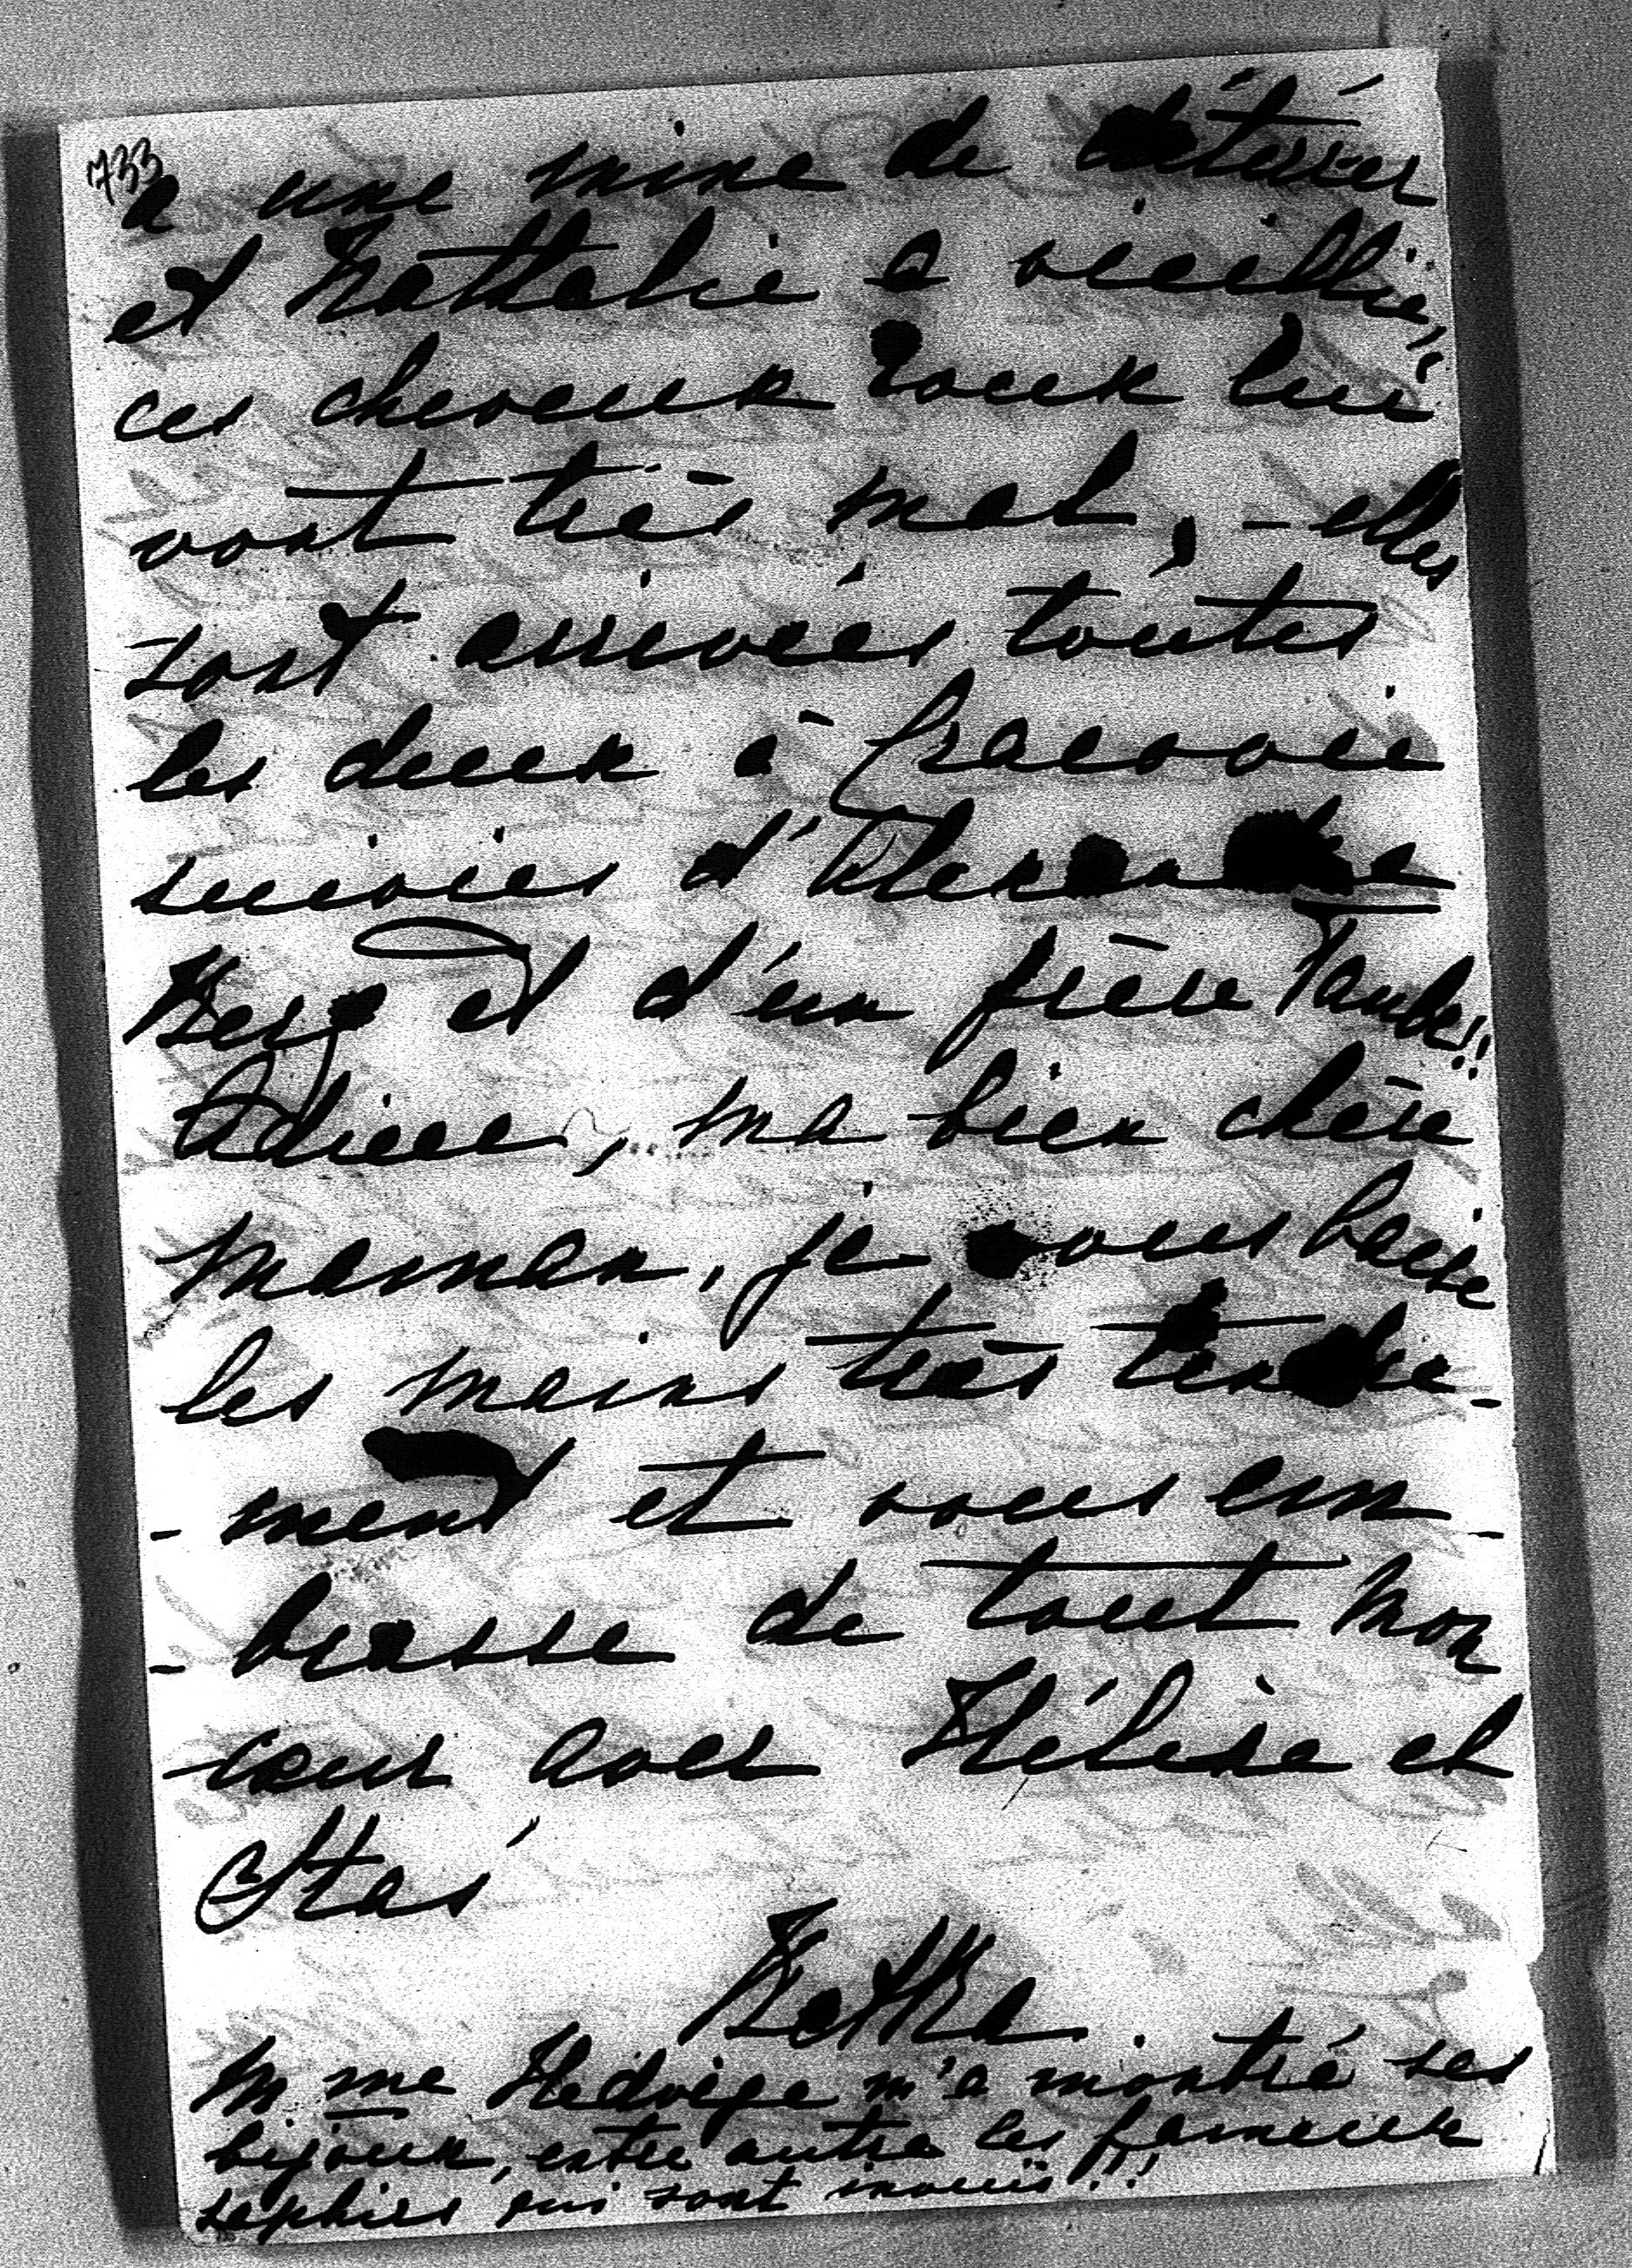 733
a une mine de déterrer
et Nathalie a vieillie,
ces cheveux roux lui
vont très mal, - elles
sont arrivées toutes
les deux à Cracovie
suivies d'Alexandre
Berg et d'un frère Taube!!
Adieu, ma bien chère
maman, je vous baise
les mains très tendre-
- ment et vous em-
- brasse de tout mon
cœur avec Hélène et
Staś
Betka
Mme Hedvige m'a montré ses
bijoux, entre autre les fameux
saphirs qui sont inouïs!!